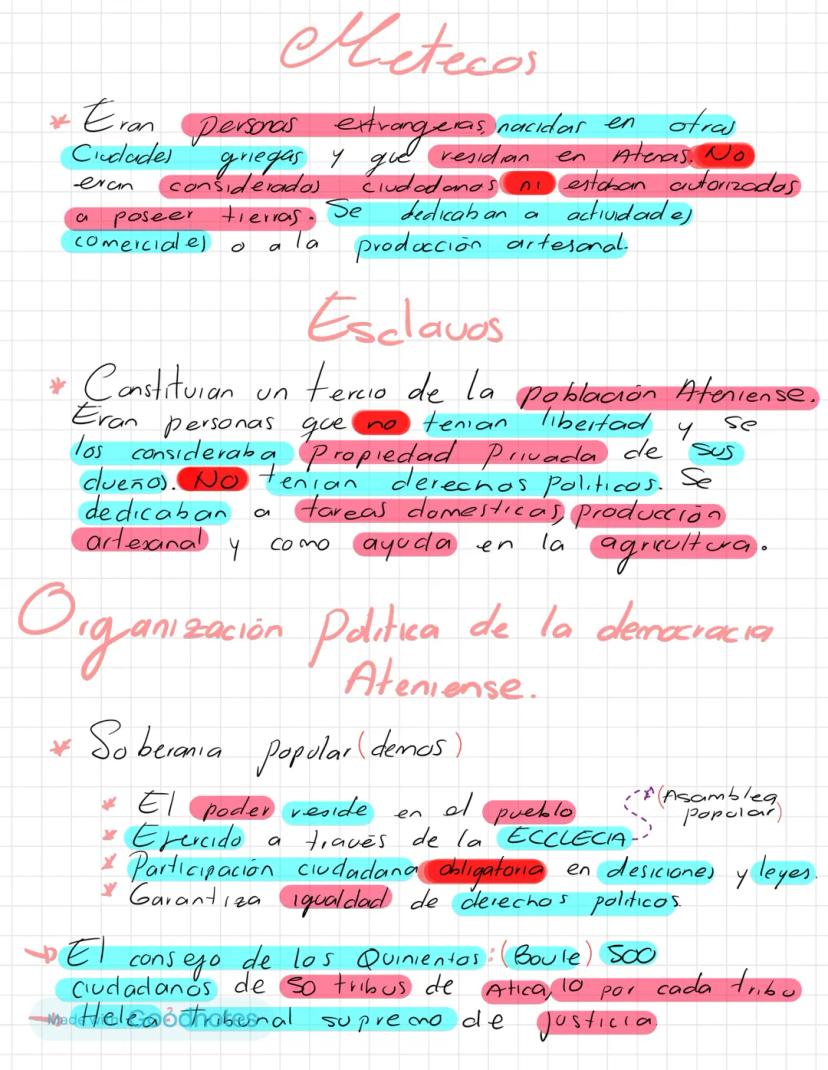 Metecos
* Eran personas extrangeras nacidas en otras
Ciudades griegas y que residian en Atenas. No
eran considerados ciudadanos ni estaban autorizados
a poseer tierras. Se dedicaban a actividades
comerciales o a la producción artesanal.
Esclavos
* Constituian un tercio de la población Ateniense.
Eran personas que no tenian libertad y se
los consideraba Propiedad Privada de sus
dueños. No tenian derechos políticos. Se
dedicaban a tareas domesticas, producción
artesanal y como ayuda en la agricultura.
Organización Política de la democracia
Ateniense.
* Soberania popular (demos)
* El poder reside en el pueblo
(Asamblea
popular)
* Ejercido a través de la ECCLECIA
* Participación ciudadana obligatoria en desiciones y leyes.
* Garantiza igualdad de derechos políticos.
→ El consejo de los Quinientos: (Boule) 500
ciudadanos de 50 tribus de Atica, 10 por cada tribu
→ Helea: Tribunal supremo de justicia
Made with Goodnotes